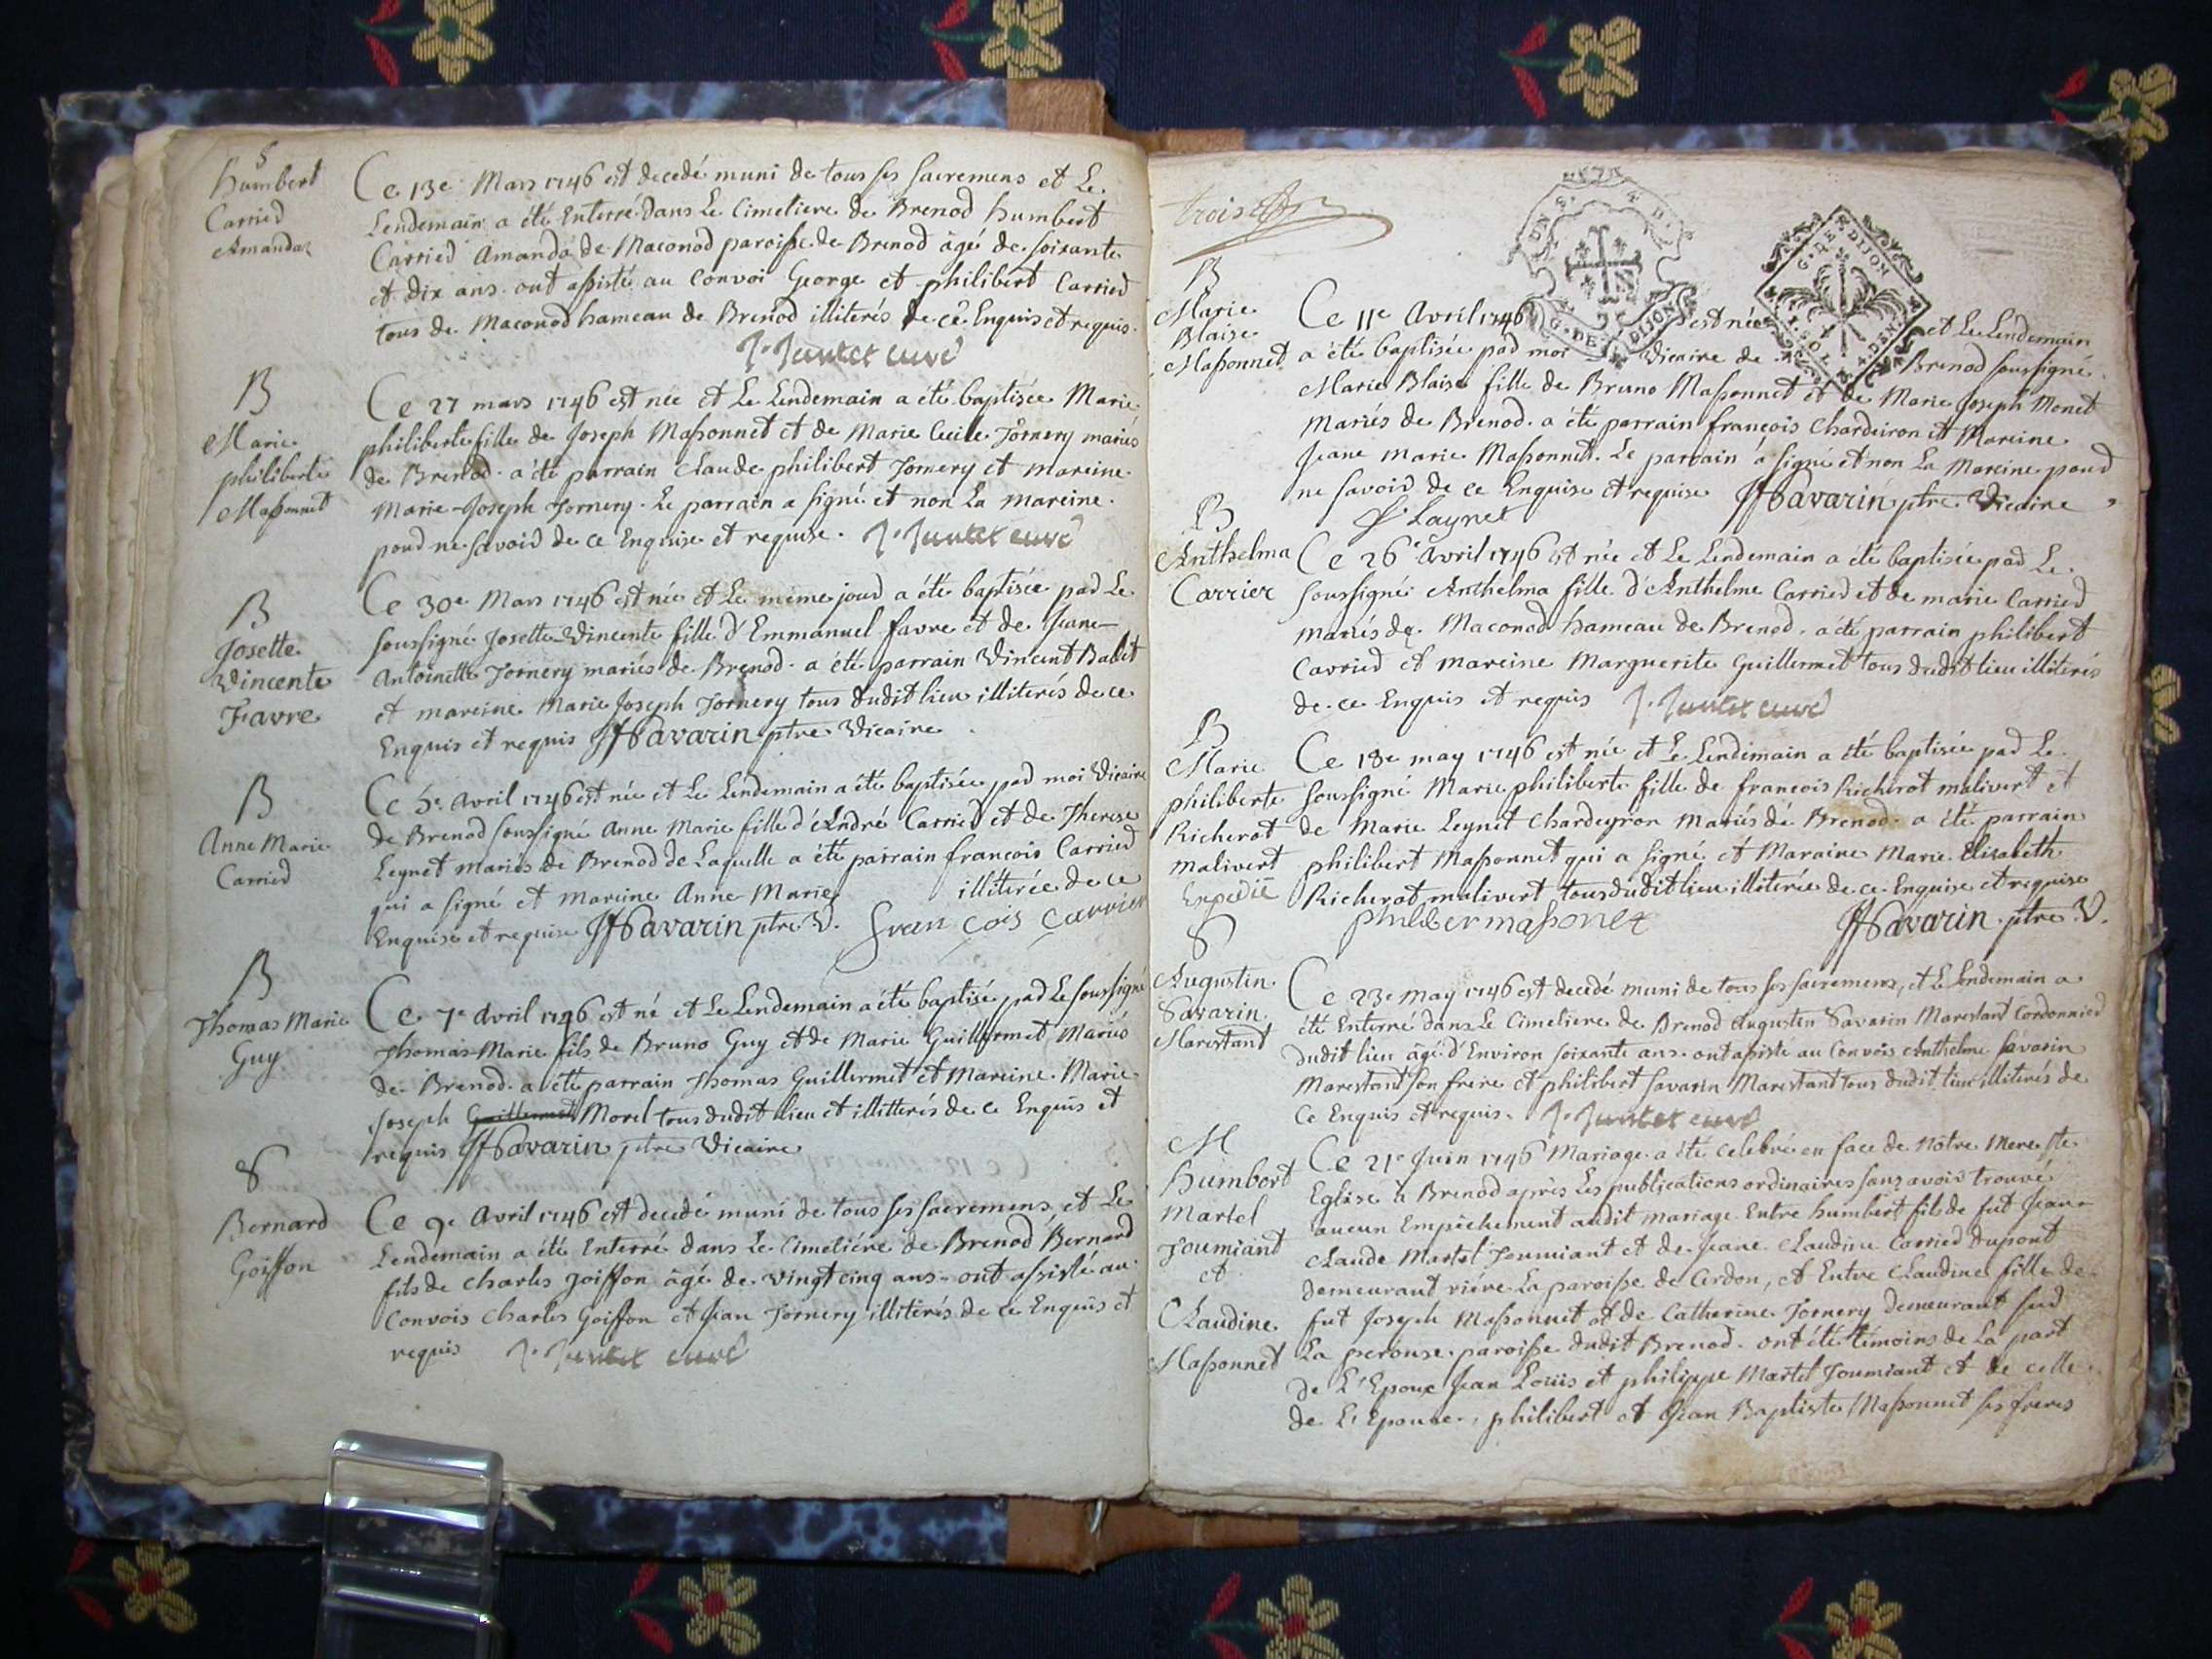 S
humbert
Carrier
Amanda
Ce 13e Mars 1746 est decedé muni de tous ses sacremens et Le
Lendemain a été Enterré dans Le Cimetiere de Brenod humbert
Carrier Amanda de Maconod paroisse de Brenod âgé de soixante
et dix ans. ont assisté au convoi George et philibert Carrier
tous de Maconod hameau de Brenod illiterés de ce Enquis et requis.
curé
B
Marie
philiberte
Massonnet
Ce 27 mars 1746 est née et Le Lendemain a été baptisée Marie
philiberte fille de Joseph Massonnet et de Marie Cecile Jornery mariés
de Brenod. a été parrain Claude philibert Jornery et mareine
Marie-Joseph Jornery. Le parrain a signé et non La mareine.
pour ne savoir de ce Enquise et requise. curé
B
Josette
Vincente
Favre
Ce 30e Mars 1746 est née et Le même jour a été baptisée par Le
soussigné Josette-Vincente fille d'Emmanuel favre et de Jeane-
Antoinette Jornery mariés de Brenod. a été parrain Vincent Balet
et mareine Marie Joseph Jornery tous dudit lieu illiterés de ce
Enquis et requis Savarin ptre Vicaire
B
Anne Marie
Carrier
Ce 5e Avril 1746 est née et Le Lendemain a été baptisée par moi Vicaire
de Brenod soussigné Anne Marie fille d'André Carrier et de Therese
Leynet mariés de Brenod de Laquelle a été parrain francois Carrier
qui a signé et mareine Anne Marie illiterée de ce
Enquise et requise Savarin ptre V. Francois Carrier
B
Thomas Marie
Guy
Ce 7e Avril 1746 est né et Le Lendemain a été baptisé par Le soussigné
Thomas-Marie fils de Bruno Guy et de Marie Guillermet Mariés
de Brenod. a été parrain Thomas Guillermet et Mareine Marie
Joseph Guillermet Morel tous dudit lieu et illitterés de ce Enquis et
requis Savarin ptre Vicaire
S
Bernard
Goiffon
Ce 9e Avril 1746 est decedé muni de tous ses sacremens et Le
Lendemain a été Enterré dans Le Cimetiére de Brenod Bernard
fils de charles Goiffon âgé de vingt cinq ans. ont assisté au
Convois charles Goiffon et Jean Jornery illiterés de ce Enquis et
requis curé
trois
G. DE DIJON
G. DE DIJON
B
Marie
Blaise
Massonnet
Ce 11e Avril 1746 est née et Le Lendemain
a été baptisée par moi Vicaire de Brenod soussigné
Marie Blaise fille de Bruno Massonnet et de Marie Joseph Monet
Mariés de Brenod. a été parrain françois Chardeiron et Mareine
Jeane Marie Massonnet. Le parrain a signé et non La Mareine pour
ne savoir de ce Enquise et requise Savarin ptre Vicaire
Laynet
B
Anthelma
Carrier
Ce 26e Avril 1746 est née et Le Lendemain a été baptisée par Le
soussigné Anthelma fille d'Anthelme Carrier et de marie Carrier
mariés de Maconod hameau de Brenod. a été parrain philibert
Carrier et mareine Marguerite Guillermet tous dudit lieu illiterés
de ce Enquis et requis curé
B
Marie
philiberte
Richerot
malivert
Expedié
Ce 18e may 1746 est née et Le Lendemain a été baptisée par Le
soussigné Marie philiberte fille de francois Richerot malivert et
de Marie Leynet Chardeyron Mariés de Brenod. a été parrain
philibert Massonnet qui a signé et Maraine Marie Elisabeth
Richerot malivert tous dudit lieu illiterée de ce Enquise et requise
philiber massonet Savarin ptre V.
S
Augustin
Savarin
Marestant
Ce 23e may 1746 est decedé muni de tous ses sacremens, et Le Lendemain a
été Enterré dans Le Cimetiere de Brenod Augustin Savarin Marestant Cordonnier
dudit lieu âgé d'Environ soixante ans. ont assisté au Convois Anthelme Savarin
Marestant son frere et philibert Savarin Marestant tous dudit lieu illiterés de
ce Enquis et requis. curé
M
humbert
Martel
Joumiant
et
Claudine
Massonnet
Ce 21e Juin 1746 Mariage a été celebré en face de notre Mere ste
Eglise à Brenod après Les publications ordinaires sans avoir trouvé
aucun Empêchement audit mariage Entre humbert fils de fut Jean
Claude Martel Joumiant et de Jeane Claudine Carrier Dupont
demeurant riére La paroisse de Cerdon, et Entre Claudine fille de
fut Joseph Massonnet et de Catherine Jornery demeurant sur
La perouse paroisse dudit Brenod. ont été témoins de La part
de L'Epoux Jean Loüis et philippe Martel Joumiant et de celle
de L'Epouse, philibert et Jean Baptiste Massonnet ses freres